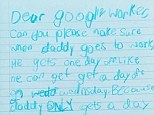 Dear google worker,
Can you please make sure
when daddy goes to work,
He gets one day off. Like
he can get get a day off
on wedn wednesday. Because
daddy ONLY gets a day